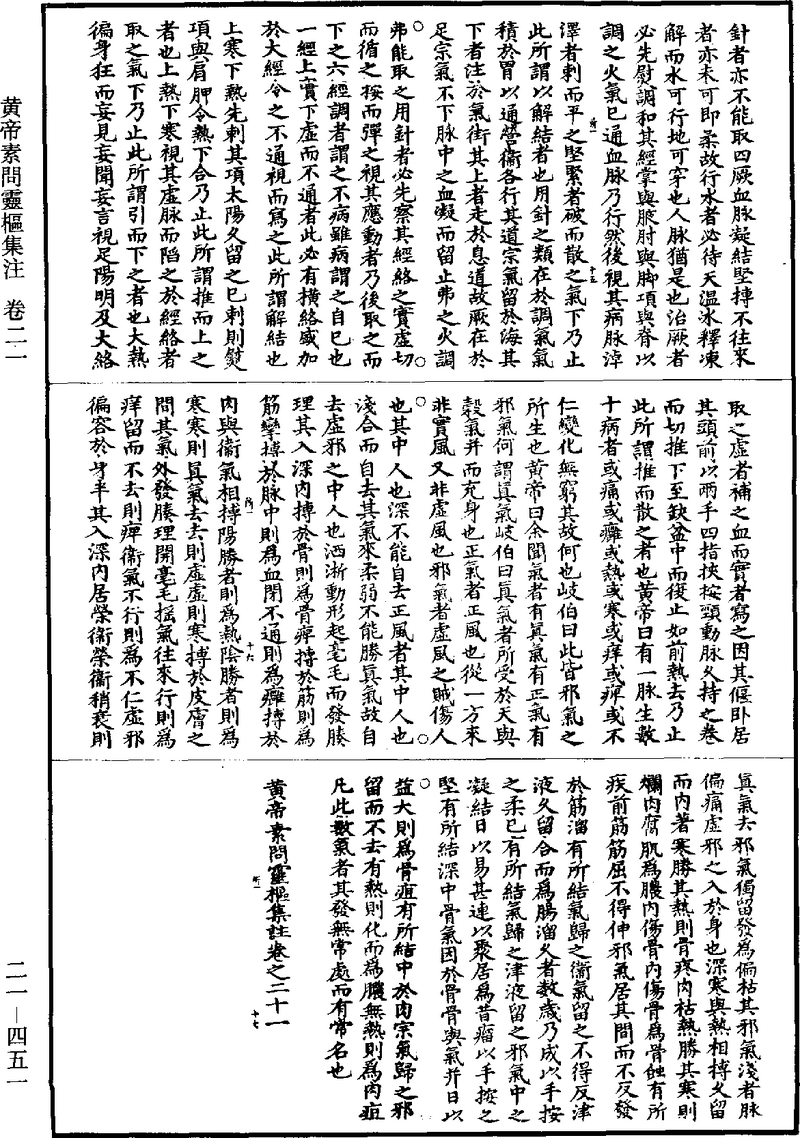 針者亦不能取四厥血脉凝結堅搏不往來
者亦未可即柔故行水者必待天溫冰釋凍
解而水可行地可穿也人脉猶是也治厥者
必先熨調和其經掌與腋肘與脚項與脊以
調之火氣已通血脉乃行然後視其病脉淖
澤者刺而平之堅緊者破而散之氣下乃止
此所謂以解結者也用針之類在於調氣氣
積於胃以通營衛各行其道宗氣留於海其
下者注於氣街其上者走於息道故厥在於
足宗氣不下脉中之血凝而留止弗之火調
弗能取之用針者必先察其經絡之實虛切
而循之按而彈之視其應動者乃後取之而
下之六經調者謂之不病雖病謂之自已也
一經上實下虛而不通者此必有橫絡盛加
於大經令之不通視而寫之此所謂解結也
上寒下熱先刺其項太陽久留之已刺則熨
項與肩胛令熱下合乃止此所謂推而上之
者也上熱下寒視其虛脉而陷之於經絡者
取之氣下乃止此所謂引而下之者也大熱
徧身狂而妄見妄聞妄言視足陽明及大絡
取之虛者補之血而實者寫之因其偃卧居
其頭前以兩手四指挾按頸動脉久持之卷
而切推下至缺盆中而復止如前熱去乃止
此所謂推而散之者也黃帝曰有一脉生數
十病者或痛或癰或熱或寒或痒或痺或不
仁變化無窮其故何也岐伯曰此皆邪氣之
所生也黃帝曰余聞氣者有眞氣有正氣有
邪氣何謂眞氣岐伯曰眞氣者所受於天與
穀氣并而充身也正氣者正風也從一方來
非實風又非虛風也邪氣者虛風之賊傷人
也其中人也深不能自去正風者其中人也
淺合而自去其氣來柔弱不能勝眞氣故自
去虛邪之中人也洒淅動形起毫毛而發腠
理其入深內搏於骨則爲骨痺搏於筋則爲
筋攣搏於脉中則爲血閉不通則爲癰搏於
肉與衞氣相搏陽勝者則爲熱陰勝者則爲
寒寒則眞氣去去則虛虛則寒搏於皮膚之
間其氣外發腠理開毫毛搖氣往來行則爲
痒留而不去則痺衞氣不行則爲不仁虛邪
徧容於身半其入深內居榮衛榮衛稍衰則
眞氣去邪氣獨留發爲偏枯其邪氣淺者脉
偏痛虛邪之入於身也深寒與熱相搏久留
而內著寒勝其熱則骨疼肉枯熱勝其寒則
爛肉腐肌爲膿內傷骨內傷骨爲骨蝕有所
疾前筋筋屈不得伸邪氣居其間而不反發
於筋溜有所結氣歸之衞氣留之不得反津
液久留合而爲腸溜久者數歲乃成以手按
之柔已有所結氣歸之津液留之邪氣中之
凝結日以易甚連以聚居爲昔瘤以手按之
堅有所結深中骨氣因於骨骨與氣并日以
益大則爲骨疽有所結中於肉宗氣歸之邪
留而不去有熱則化而爲膿無熱則爲肉疽
凡此數氣者其發無常處而有常名也
黃帝素問靈樞集註卷之二十一
黄帝素問靈樞集注　卷二一
二一—四五一